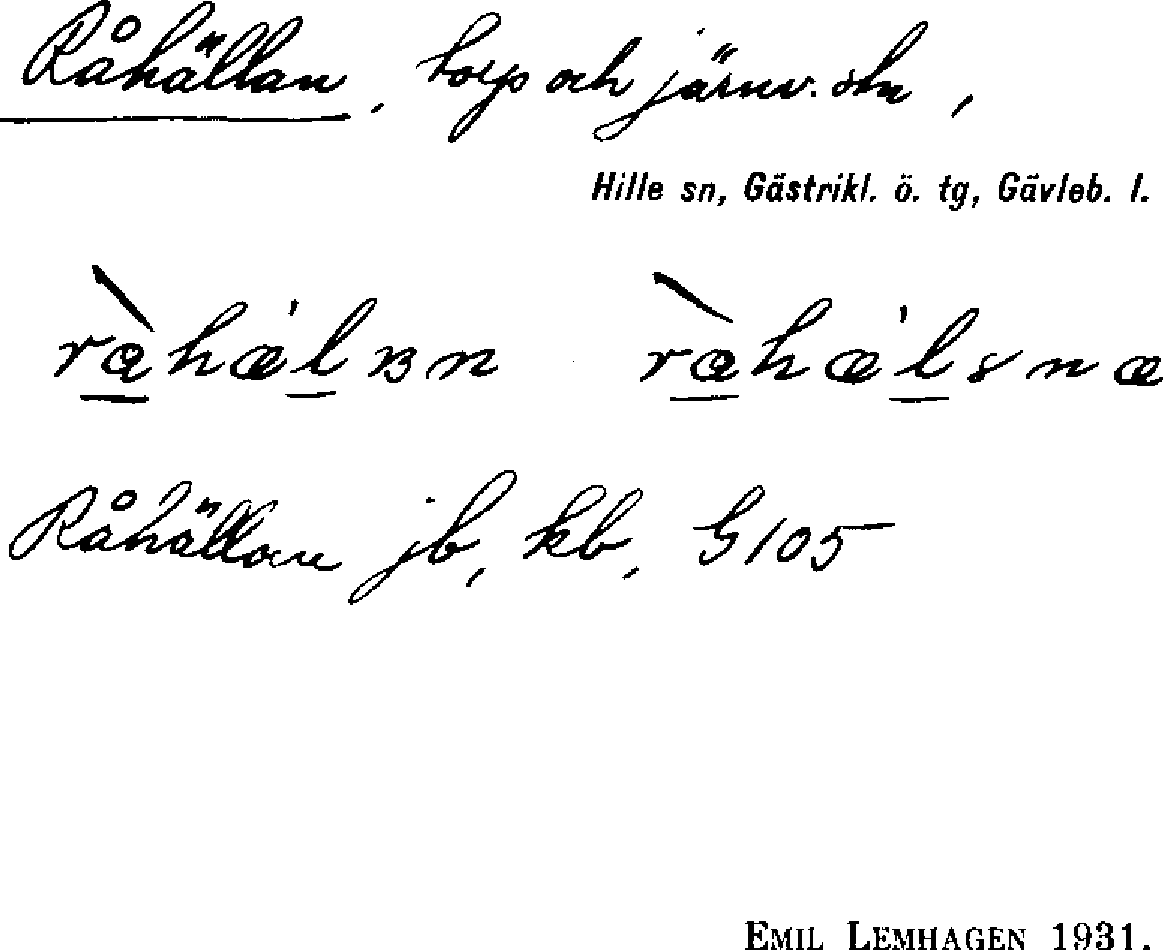 Råhällan, torp och järnv. stn,
Hille sn, Gästrikl. ö. tg, Gävleb. l.
Råhällan jb, kb, G105
EMIL LEMHAGEN 1931.